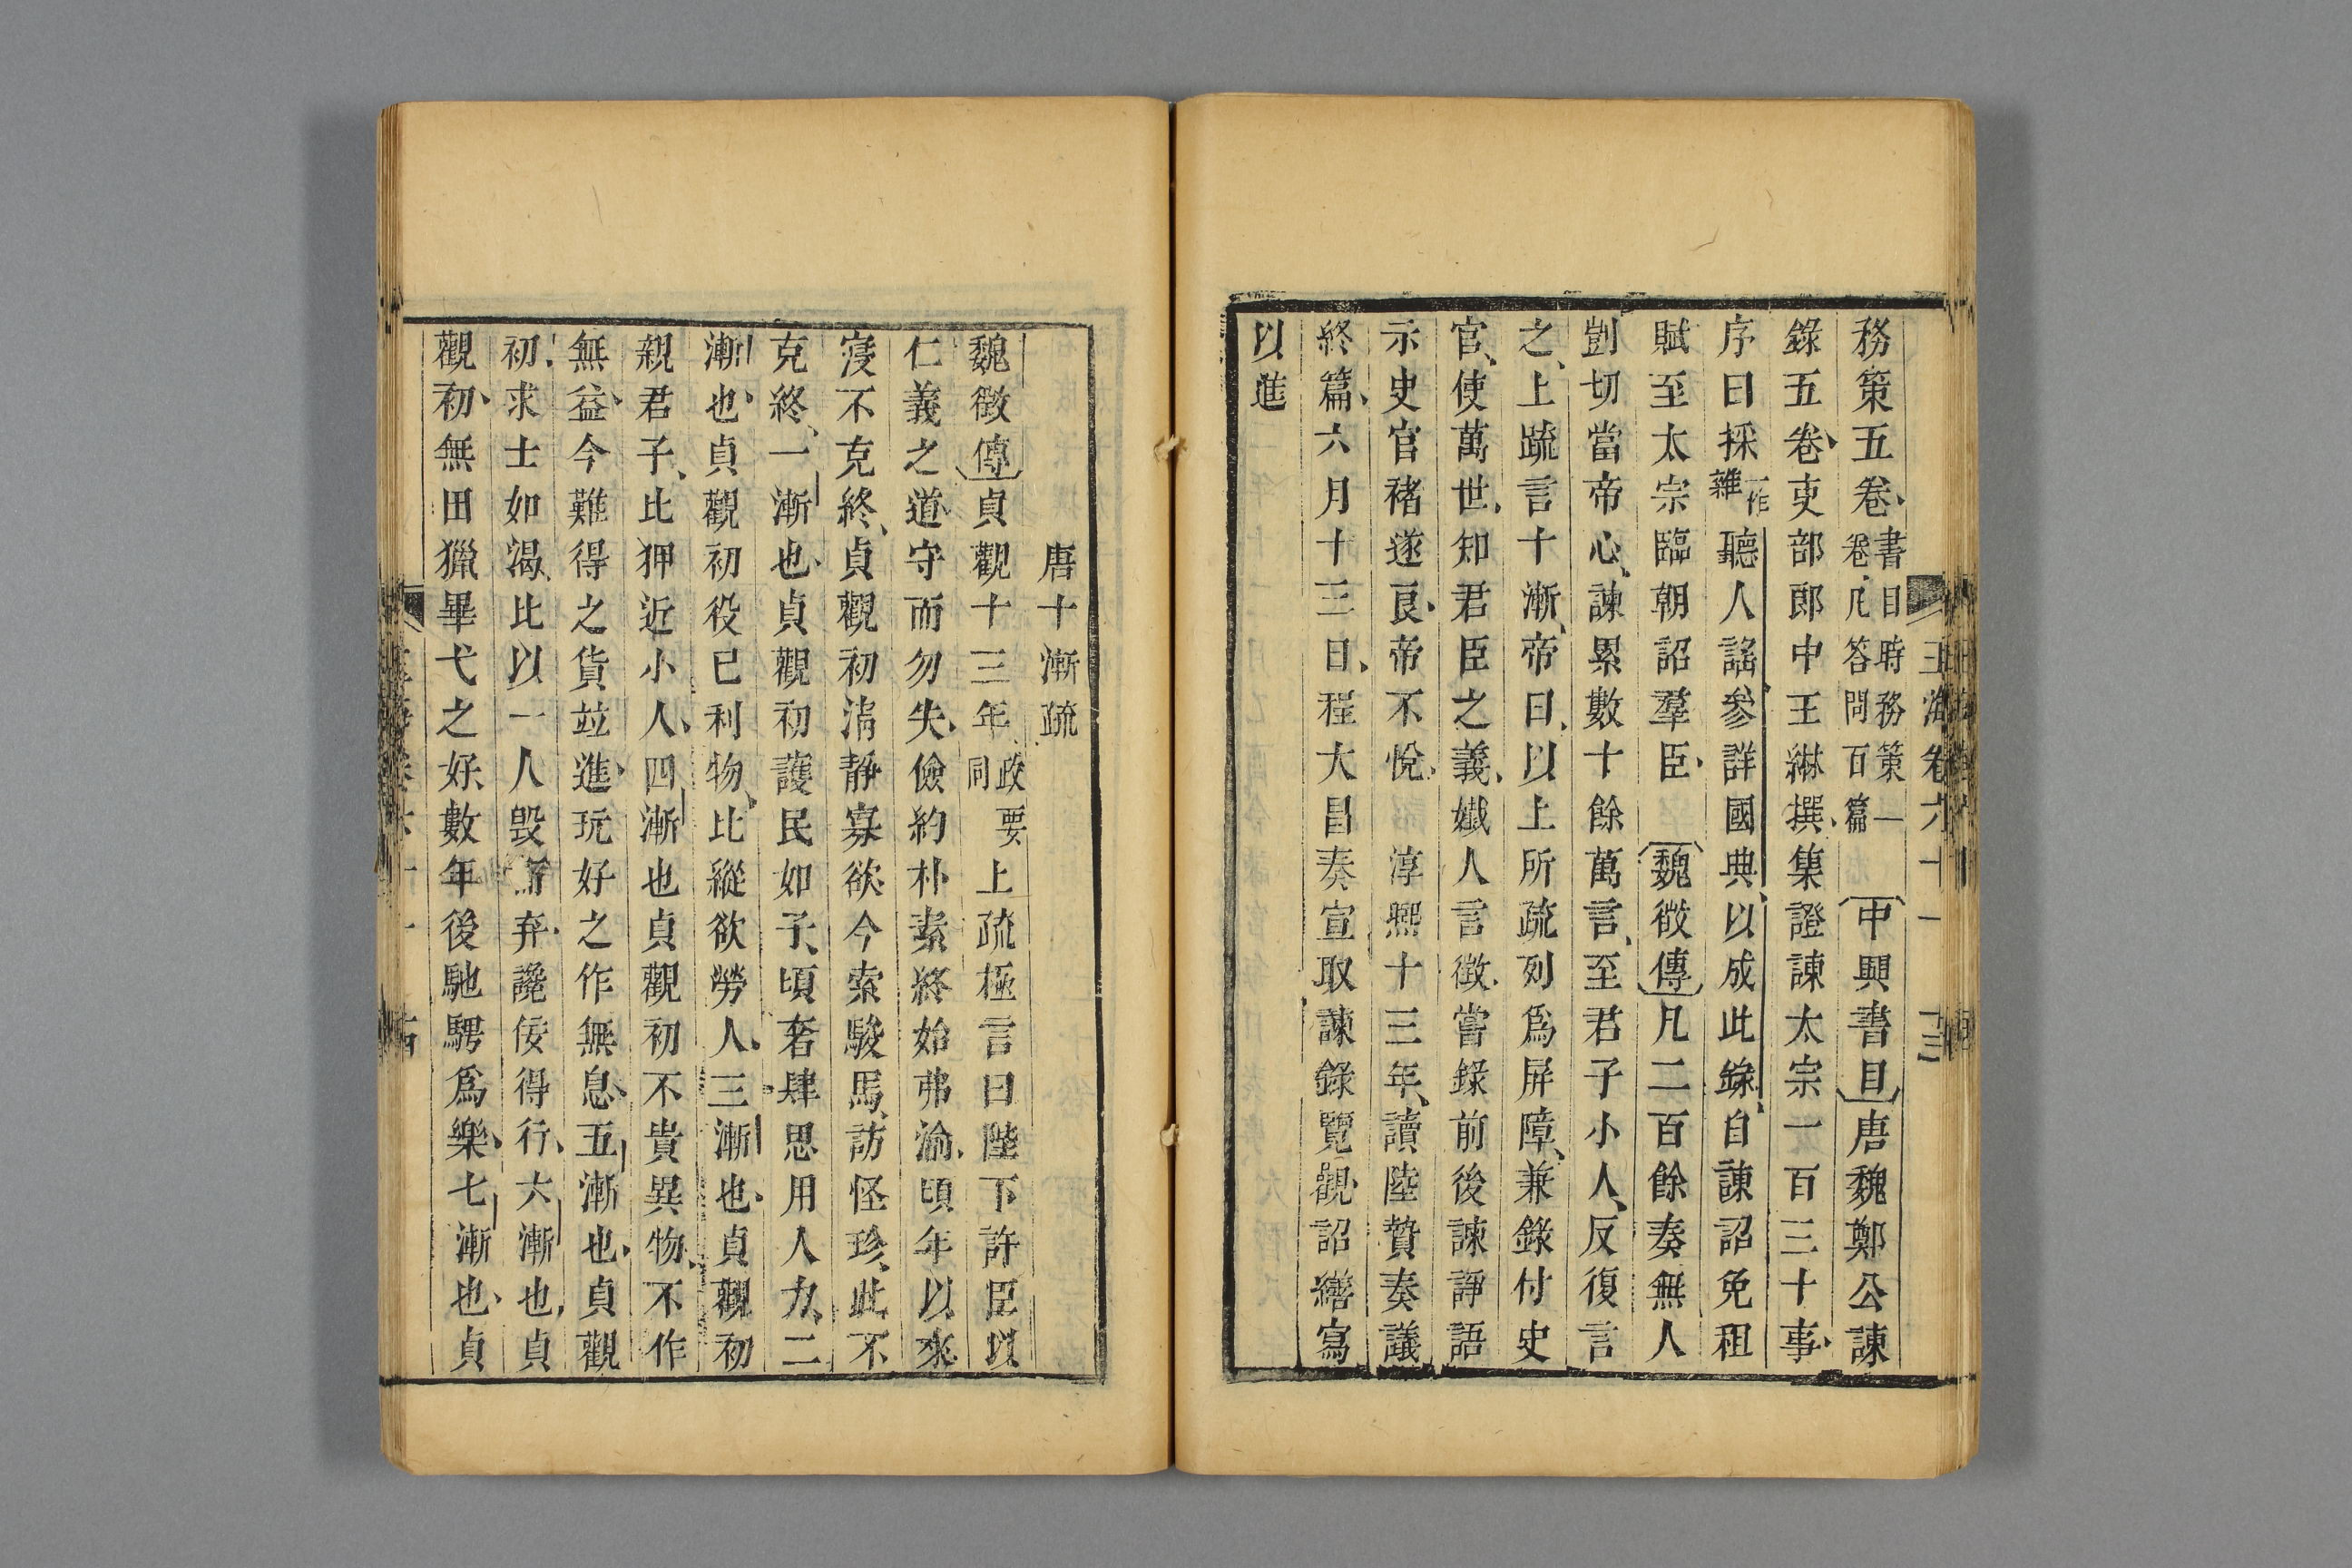 玉海卷六十一 十三
務策五卷書目時務策一卷凡答問百篇中興書目唐魏鄭公諫
錄五卷吏部郎中王綝撰集證諫太宗一百三十事
序曰採一作雜聽人謠參詳國典以成此錄自諫詔免租
賦至太宗臨朝詔羣臣魏徵傳凡二百餘奏無人
剴切當帝心諫累數十餘萬言至君子小人反復言
之上疏言十漸帝曰以上所疏列爲屏障兼錄付史
官使萬世知君臣之義孅人言徵嘗錄前後諫諍語
示史官褚遂良帝不悅 淳熙十三年讀陸贄奏議
終篇六月十三日程大昌奏宣取諫錄覽觀詔繕寫
以進
唐十漸疏
魏徵傳貞觀十三年政要同上疏極言曰陛下許臣以
仁義之道守而勿失儉約朴素終始弗渝頃年以來
寖不克終貞觀初清靜寡欲今索駿馬訪怪珍此不
克終一漸也貞觀初護民如子頃奢肆思用人力二
漸也貞觀初役已利物比縱欲勞人三漸也貞觀初
親君子比狎近小人四漸也貞觀初不貴異物不作
無益今難得之貨竝進玩好之作無息五漸也貞觀
初求士如渴比以一人毀弃讒佞得行六漸也貞
觀初無田獵畢弋之好數年後馳騁爲樂七漸也貞